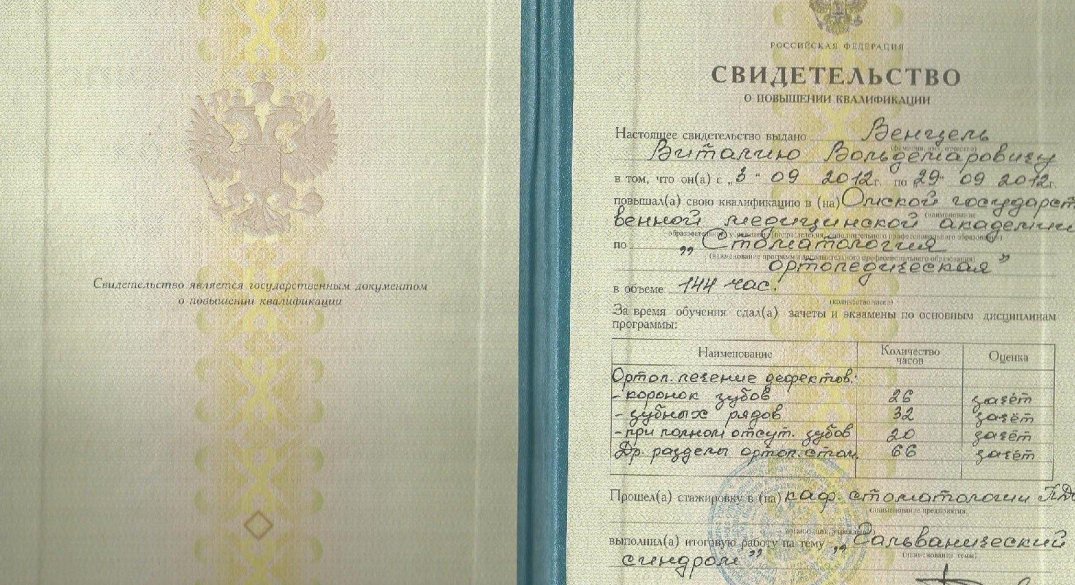 Свидетельство является государственным документом
о повышении квалификации
РОССИЙСКАЯ ФЕДЕРАЦИЯ
СВИДЕТЕЛЬСТВО
О ПОВЫШЕНИИ КВАЛИФИКАЦИИ
Настоящее свидетельство выдано Венцель
(фамилия, имя, отчество)
Виталию Вольдемаровичу
в том, что он(а) с „3 - 09 2012г. по 29 09 2012г.
повышал(а) свою квалификацию в (на) Омской государст
(наименование
венной медицинской академии
по „Стоматология
(наименование программы дополнительного профессионального образования)
ортопедическая"
в объеме 144 час.
(количество часов)
За время обучения сдал(а) зачеты и экзамены по основным дисциплинам
программы:
Наименование Количество часов Оценка
Ортоп. лечение дефектов:
- коронок зубов 26 зачёт
- зубных рядов 32 зачёт
- при полном отсут. зубов 20 зачёт
Др. разделы ортоп. стом. 66 зачёт
Прошел(а) стажировку в (на) каф. стоматологии ПД
(наименование предприятия,
выполнил(а) итоговую работу на тему „Гальванический
(наименование темы)
синдром"